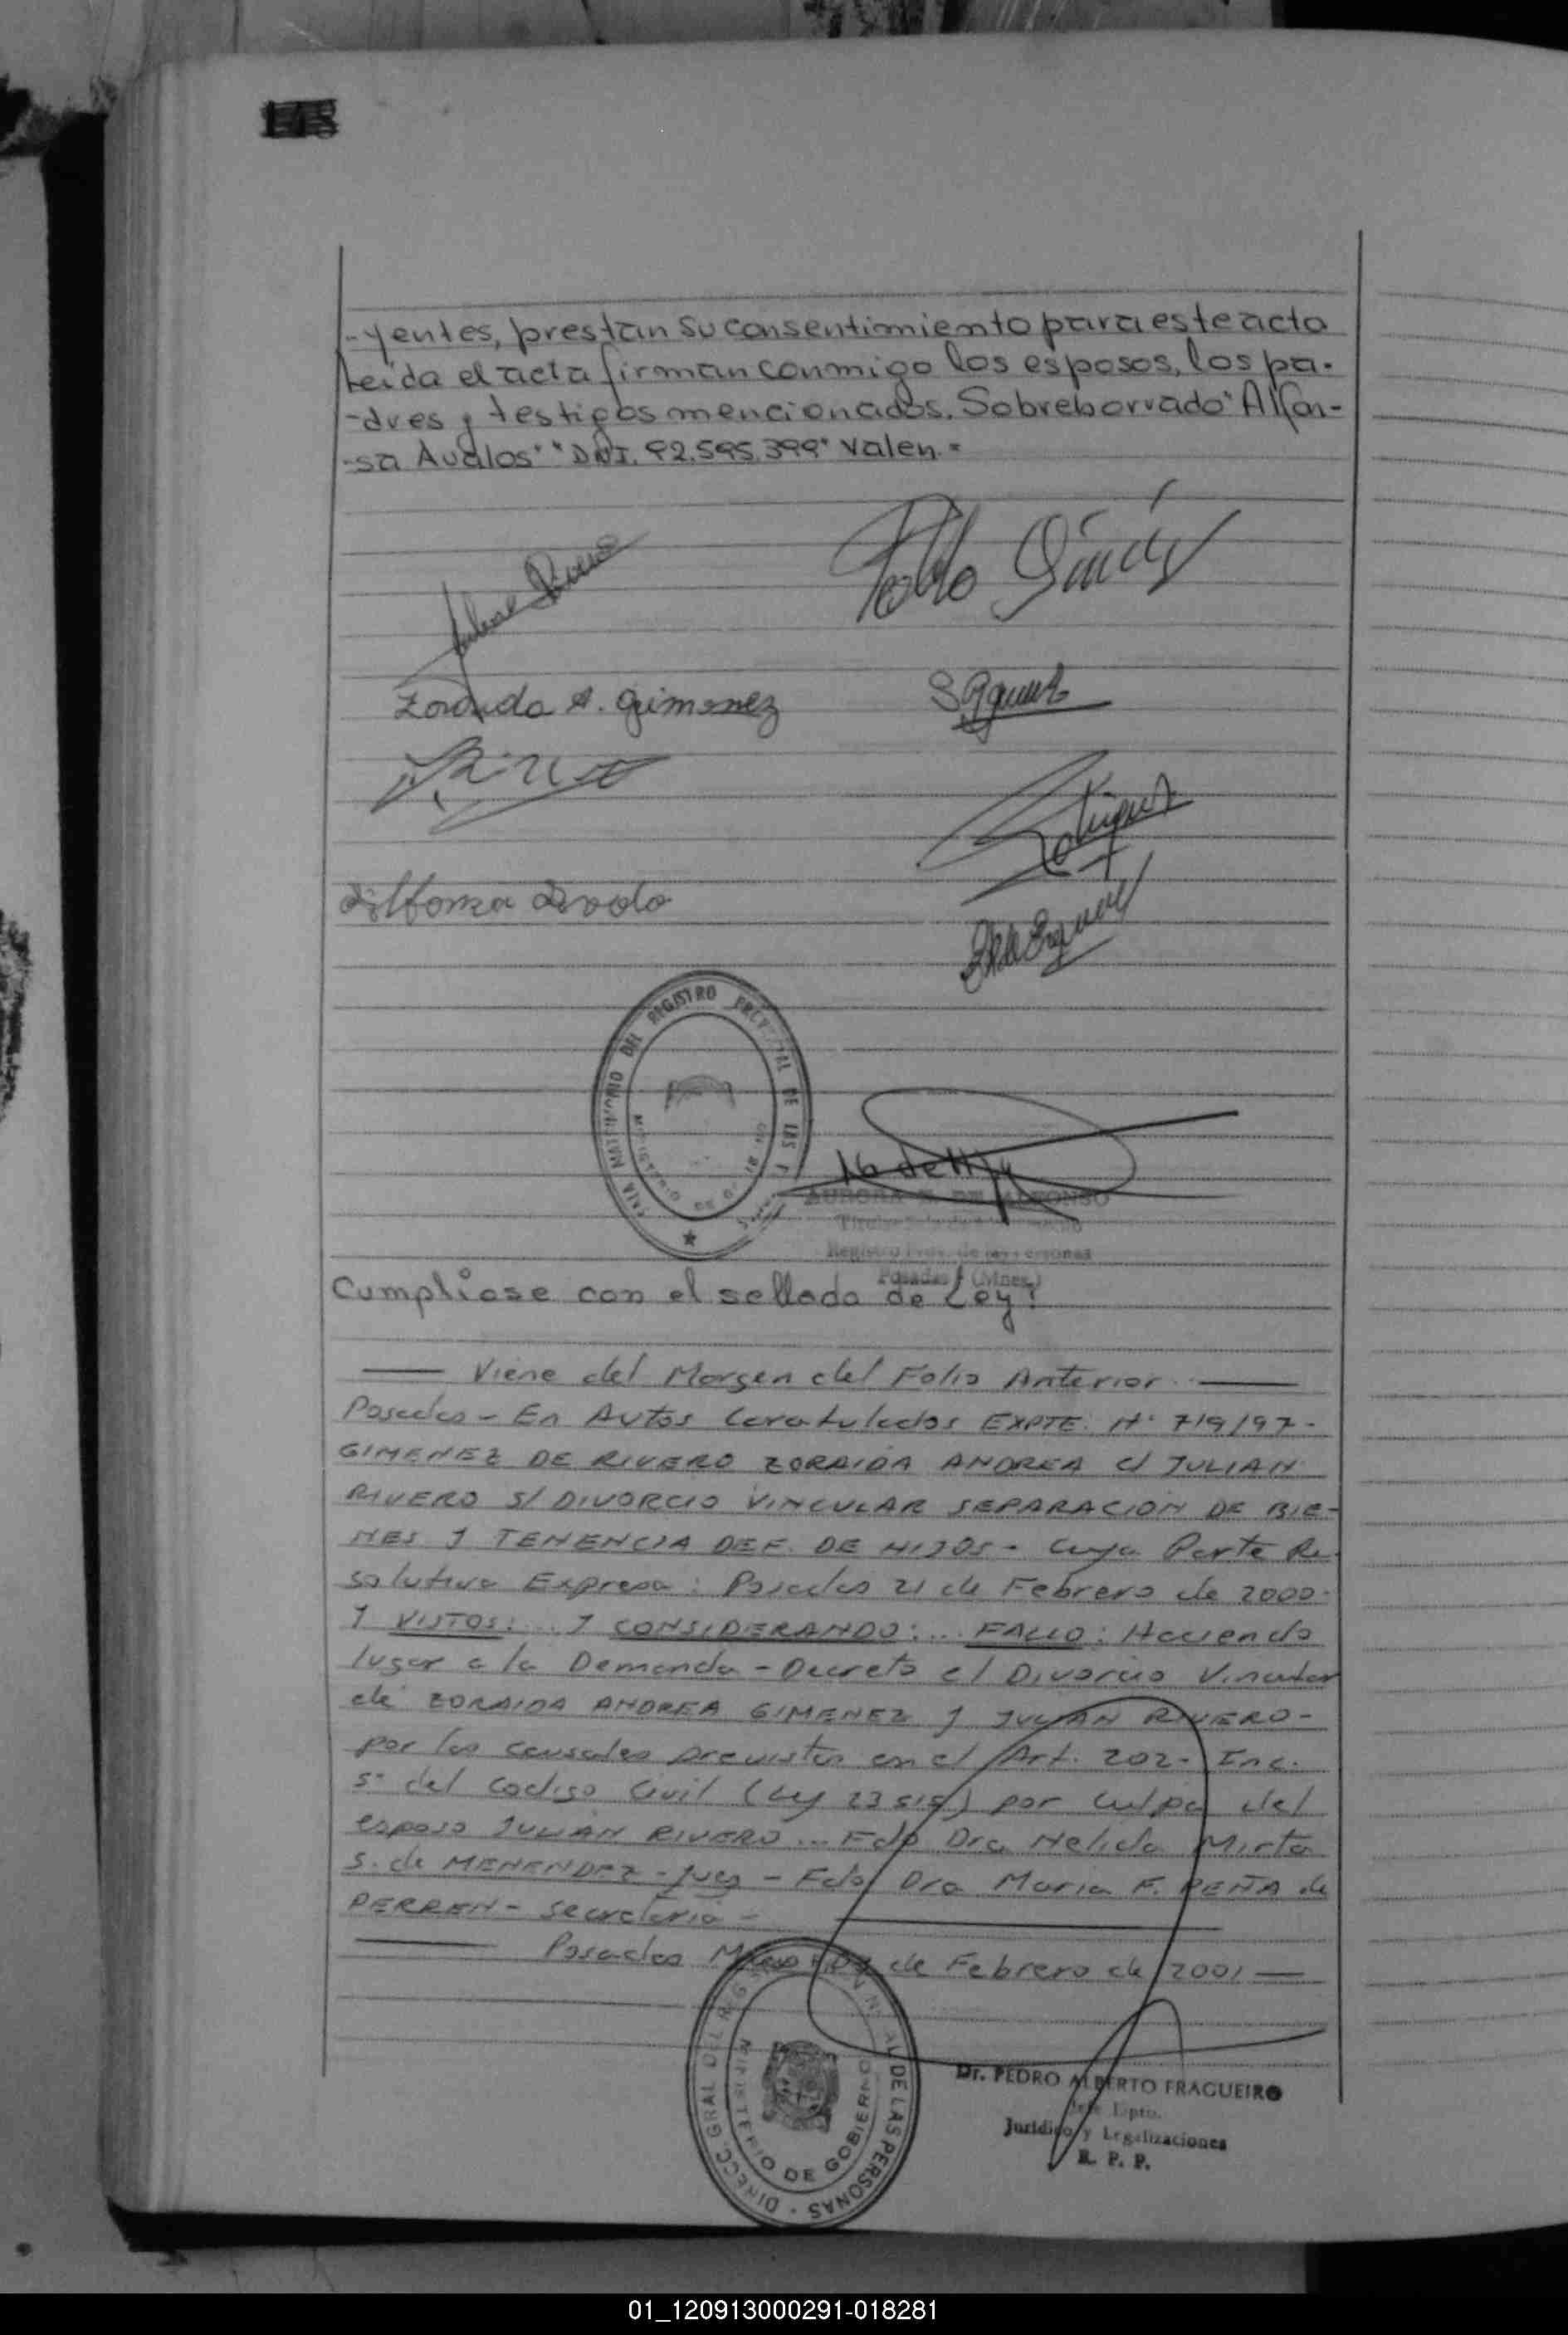 -yentes, prestan su consentimiento para este acto
Leída el acta firman conmigo los esposos, los pa-
-dres y testigos mencionados. Sobreborrado "Alfon-
-sa Avalos" "DNI. 92.595.399" Valen.=
Zoraida A. Gimenez
16 de
AURORA DE ALFONSO
Titular
Registro Prov. de las Personas
Posadas (Mnes.)
Cumpliose con el sellado de Ley!
Viene del Margen del Folio Anterior
Posadas - En Autos Caratulados EXPTE. Nº 719/97-
GIMENEZ DE RIVERO ZORAIDA ANDREA C/ JULIAN
RIVERO S/ DIVORCIO VINCULAR SEPARACION DE BIE-
NES Y TENENCIA DEF. DE HIJOS - Cuya Parte Re
solutiva Expresa: Posadas 21 de Febrero de 2000-
Y VISTOS: ... Y CONSIDERANDO: ... FALLO: Haciendo
lugar a la Demanda - Decreto el Divorcio Vincular
de ZORAIDA ANDREA GIMENEZ Y JULIAN RIVERO-
por las causales previstas en el Art. 202- Inc.
5º del Codigo Civil (Ley 23515) por culpa del
esposo JULIAN RIVERO ... Fdo Dra Nelida Mirta
S. de MENENDEZ - Juez - Fdo Dra Maria F. PEÑA de
PERREN - Secretaria -
Posadas de Febrero de 2001
DIRECC. GRAL DEL REG DE LAS PERSONAS
MINISTERIO DE GOBIERNO
Dr. PEDRO ALBERTO FRAGUEIRO
Jefe Dpto.
Jurídico y Legalizaciones
R. P. P.
01_120913000291-018281